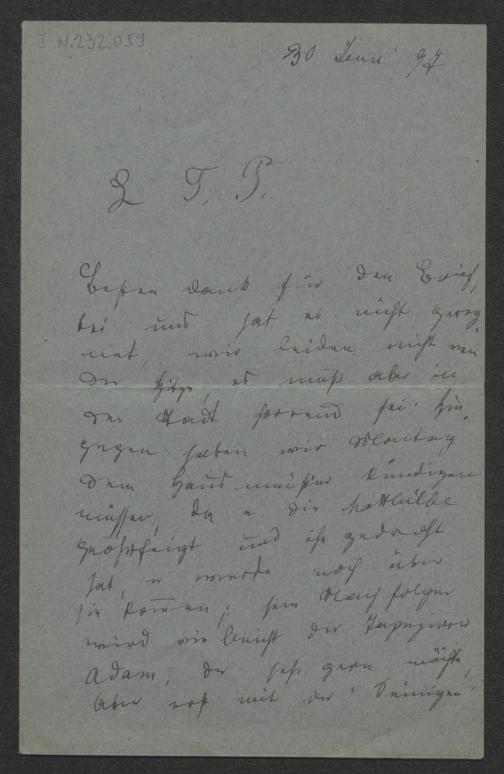 I.N.232.089
30 Juni 97
L. T. P.
Besten Dank für den Brief,
bei uns hat es nicht gereg
net, wir leiden nicht von
der Hitze, es muß aber in
der Stadt horrend sei. Hin
gegen haben wir Montag
dem Hausmeister kündigen
müssen, da er die Mathilde
geohrfeigt und ihr gedroht
hat, er werde noch über
sie kommen; sein Nachfolger
wird vielleicht der Tapezierer
Adam, der sehr gern möchte,
aber erst mit der "Seinigen"